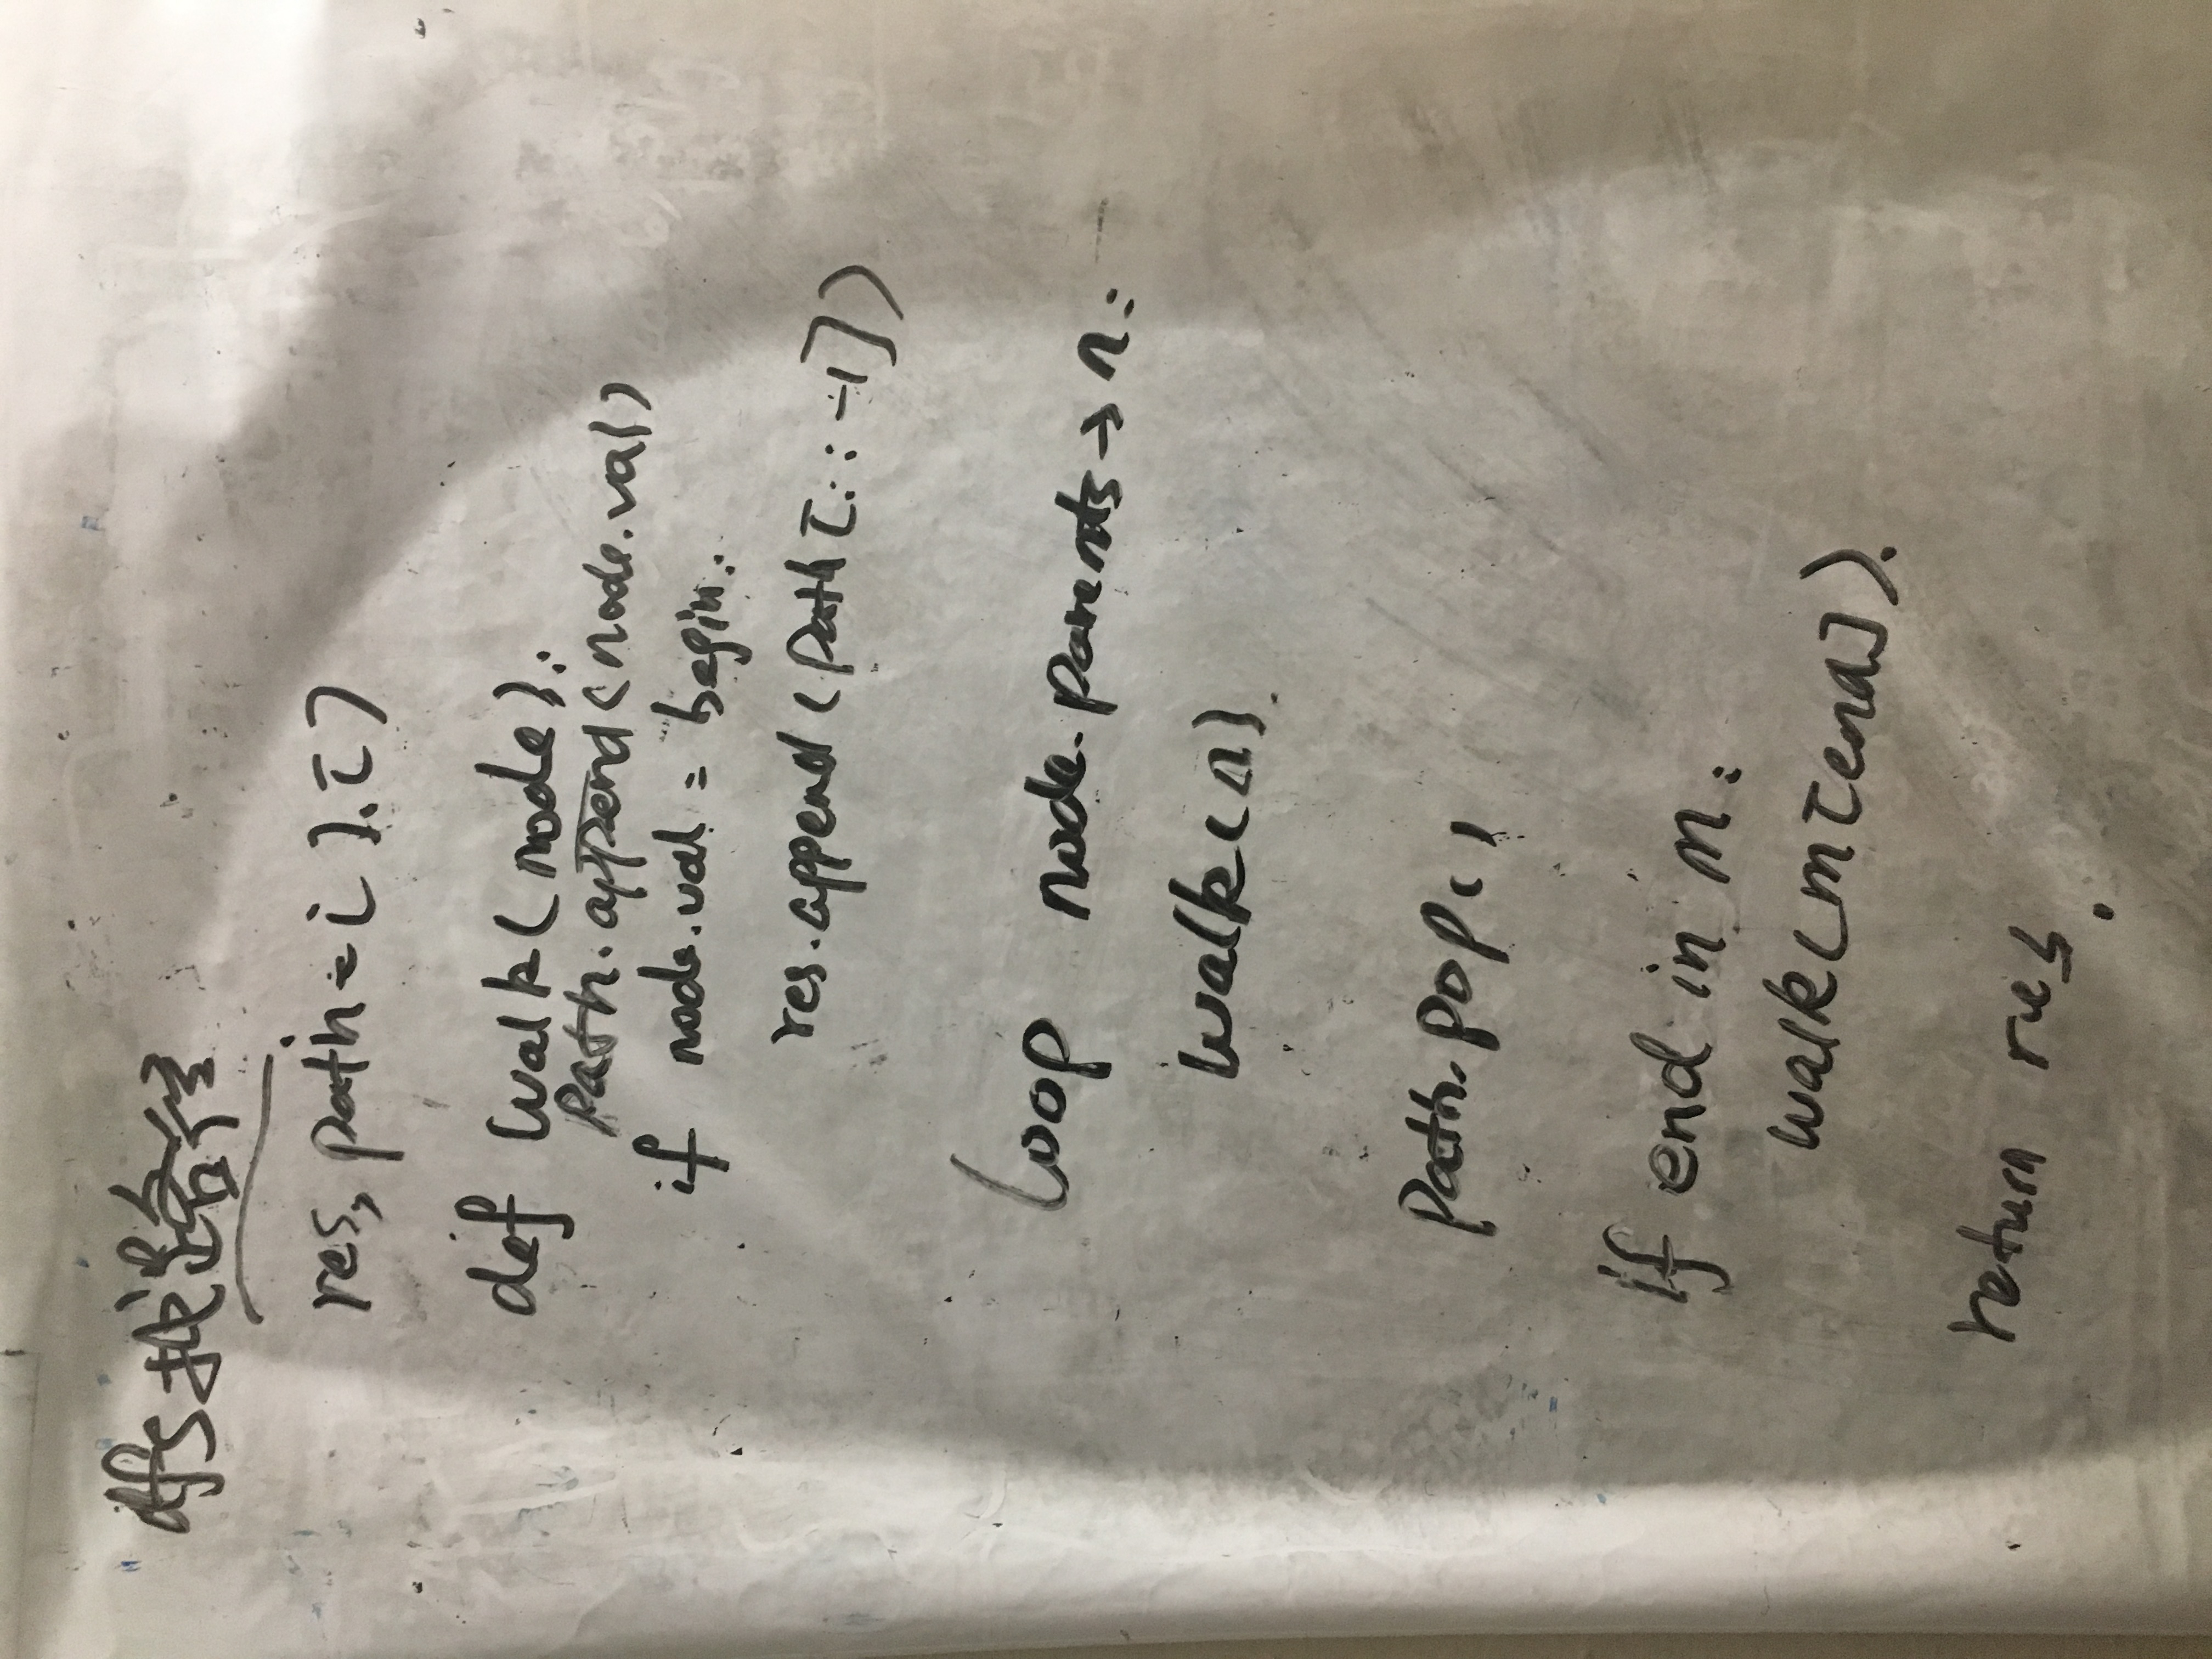 dfs找路径
res, path = [ ], [ ]
def walk(node):
path.append(node.val)
if node.val = begin:
res.append(path[::-1])
loop node.parents → n:
walk(n).
path.pop()
if end in m:
walk(m[end]).
return res.